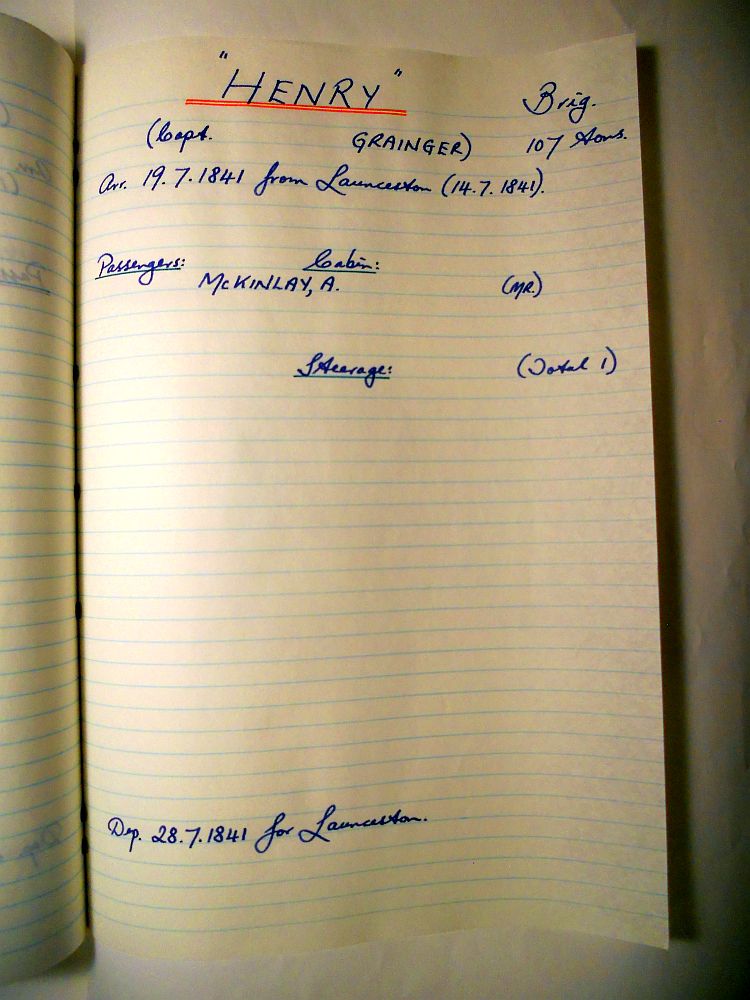 "HENRY" Brig.
(Capt. GRAINGER) 107 tons.
Arr. 19.7.1841 from Launceston (14.7.1841).
Passengers: Cabin:
McKINLAY, A. (MR.)
Steerage: (Total 1)
Dep. 28.7.1841 for Launceston.